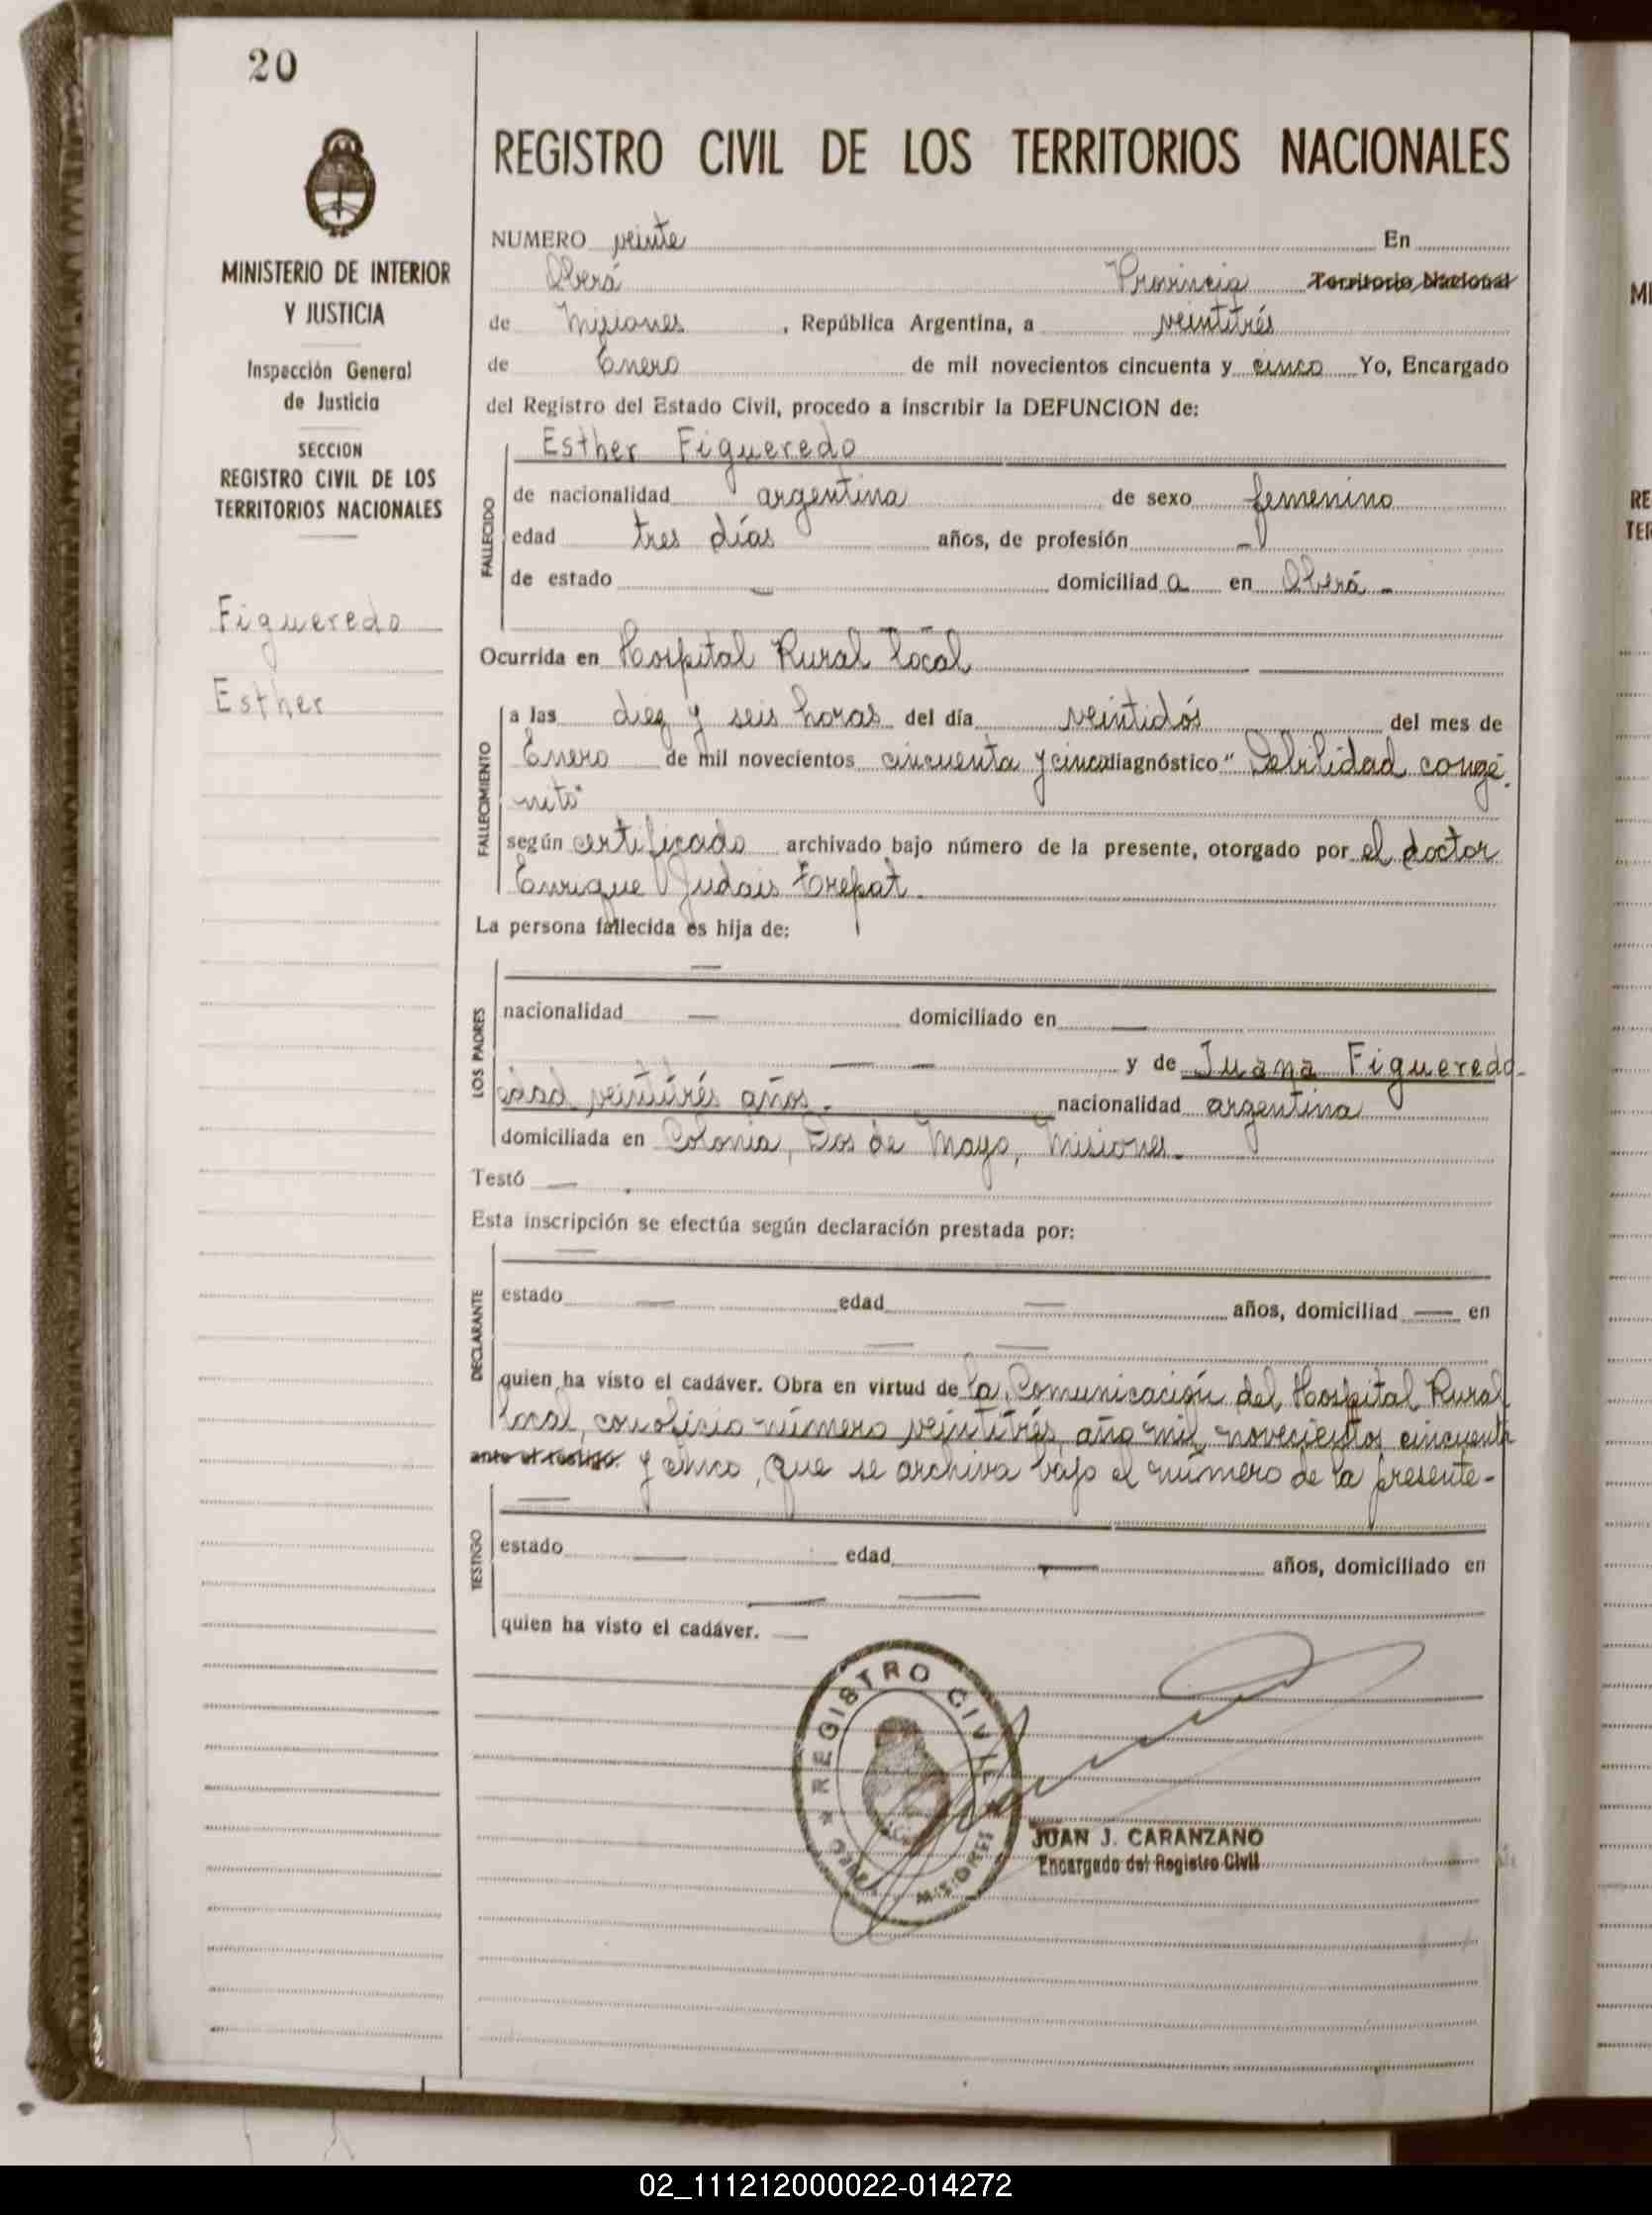 20
MINISTERIO DE INTERIOR
Y JUSTICIA
Inspección General
de Justicia
SECCION
REGISTRO CIVIL DE LOS
TERRITORIOS NACIONALES
Figueredo
Esther
REGISTRO CIVIL DE LOS TERRITORIOS NACIONALES
NUMERO veinte En
Oberá Provincia Territorio Nacional
de Misiones , República Argentina, a veintitrés
de Enero de mil novecientos cincuenta y cinco Yo, Encargado
del Registro del Estado Civil, procedo a inscribir la DEFUNCION de:
FALLECIDO
Esther Figueredo
de nacionalidad argentina de sexo femenino
edad tres días años, de profesión -
de estado — domiciliad a en Oberá -
Ocurrida en Hospital Rural local
FALLECIMIENTO
a las diez y seis horas del día veintidós del mes de
Enero de mil novecientos cincuenta y cinco diagnóstico "Debilidad congé
nito"
según certificado archivado bajo número de la presente, otorgado por el doctor
Enrique Judais Trepat.
La persona fallecida es hija de:
LOS PADRES
—
nacionalidad — domiciliado en —
— — y de Juana Figueredo-
edad veintitrés años.- nacionalidad argentina
domiciliada en Colonia, Dos de Mayo, Misiones.-
Testó — .
Esta inscripción se efectúa según declaración prestada por:
DECLARANTE
—
estado — edad — años, domiciliad — en
— —
quien ha visto el cadáver. Obra en virtud de la Comunicación del Hospital Rural
local, con oficio número veintitrés, año mil novecientos cincuenta
ante el testigo. y cinco, que se archiva bajo el número de la presente-
TESTIGO
—
estado — edad — años, domiciliado en
— —
quien ha visto el cadáver. —
REGISTRO CIVIL
MISIONES
JUAN J. CARANZANO
Encargado del Registro Civil
02_111212000022-014272